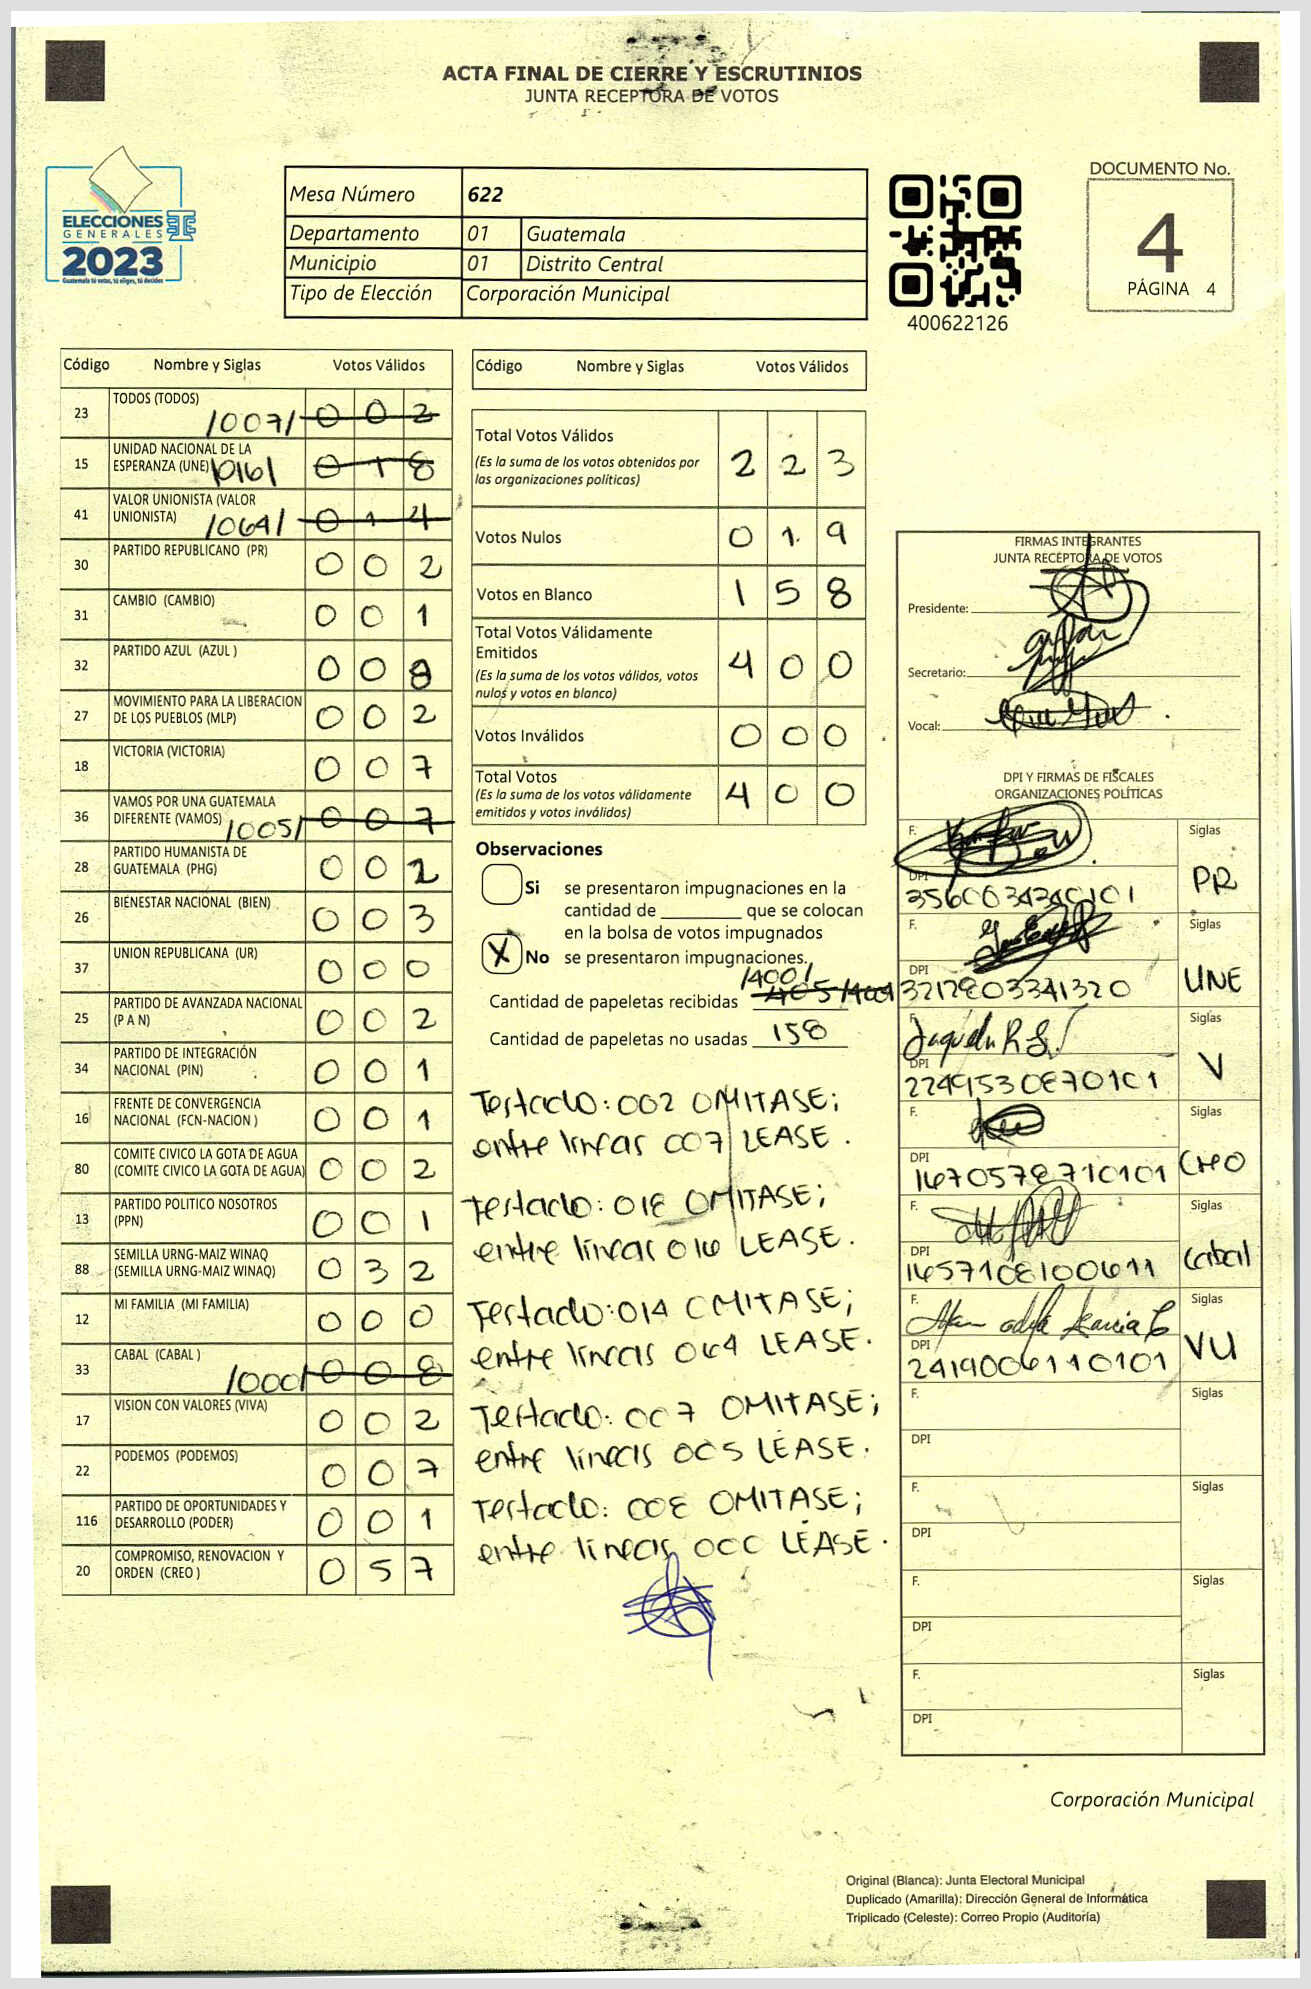 ACTA FINAL DE CIERRE Y ESCRUTINIOS
JUNTA RECEPTORA DE VOTOS
ELECCIONES
GENERALES
2023
Guatemala tú votas, tú eliges, tú decides
Mesa Número 622
Departamento 01 Guatemala
Municipio 01 Distrito Central
Tipo de Elección Corporación Municipal
400622126
DOCUMENTO No.
4
PÁGINA 4
Código Nombre y Siglas Votos Válidos
23 TODOS (TODOS) /007/ 0 0 2
15 UNIDAD NACIONAL DE LA
ESPERANZA (UNE) /016/ 0 1 8
41 VALOR UNIONISTA (VALOR
UNIONISTA) /064/ 0 1 4
30 PARTIDO REPUBLICANO (PR) 0 0 2
31 CAMBIO (CAMBIO) 0 0 1
32 PARTIDO AZUL (AZUL ) 0 0 8
27 MOVIMIENTO PARA LA LIBERACION
DE LOS PUEBLOS (MLP) 0 0 2
18 VICTORIA (VICTORIA) 0 0 7
36 VAMOS POR UNA GUATEMALA
DIFERENTE (VAMOS) /005/ 0 0 7
28 PARTIDO HUMANISTA DE
GUATEMALA (PHG) 0 0 2
26 BIENESTAR NACIONAL (BIEN) 0 0 3
37 UNION REPUBLICANA (UR) 0 0 0
25 PARTIDO DE AVANZADA NACIONAL
(P A N) 0 0 2
34 PARTIDO DE INTEGRACIÓN
NACIONAL (PIN) 0 0 1
16 FRENTE DE CONVERGENCIA
NACIONAL (FCN-NACION ) 0 0 1
80 COMITE CIVICO LA GOTA DE AGUA
(COMITE CIVICO LA GOTA DE AGUA) 0 0 2
13 PARTIDO POLITICO NOSOTROS
(PPN) 0 0 1
88 SEMILLA URNG-MAIZ WINAQ
(SEMILLA URNG-MAIZ WINAQ) 0 3 2
12 MI FAMILIA (MI FAMILIA) 0 0 0
33 CABAL (CABAL ) /000/ 0 0 8
17 VISION CON VALORES (VIVA) 0 0 2
22 PODEMOS (PODEMOS) 0 0 7
116 PARTIDO DE OPORTUNIDADES Y
DESARROLLO (PODER) 0 0 1
20 COMPROMISO, RENOVACION Y
ORDEN (CREO ) 0 5 7
Código Nombre y Siglas Votos Válidos
Total Votos Válidos
(Es la suma de los votos obtenidos por
las organizaciones políticas) 2 2 3
Votos Nulos 0 1 9
Votos en Blanco 1 5 8
Total Votos Válidamente
Emitidos
(Es la suma de los votos válidos, votos
nulos y votos en blanco) 4 0 0
Votos Inválidos 0 0 0
Total Votos
(Es la suma de los votos válidamente
emitidos y votos inválidos) 4 0 0
Observaciones
Si se presentaron impugnaciones en la
cantidad de ________ que se colocan
en la bolsa de votos impugnados
X No se presentaron impugnaciones.
/400/
Cantidad de papeletas recibidas 405 /400/
Cantidad de papeletas no usadas 158
Testado: 002 OMITASE;
entre lineas 007 LEASE.
Testado: 018 OMITASE;
entre lineas 016 LEASE.
Testado: 014 OMITASE;
entre lineas 064 LEASE.
Testado: 007 OMITASE;
entre líneas 005 LEASE.
Testado: 008 OMITASE;
entre lineas 000 LEASE.
FIRMAS INTEGRANTES
JUNTA RECEPTORA DE VOTOS
Presidente:
Secretario:
Vocal:
DPI Y FIRMAS DE FISCALES
ORGANIZACIONES POLÍTICAS
F. Siglas
DPI PR
3560034340101
F. Siglas
DPI UNE
3212803341320
F. Siglas
DPI V
2249530870101
F. Siglas
DPI CREO
1670578710101
F. Siglas
DPI Cabal
1657108100611
F. Siglas
DPI VU
2419006110101
F. Siglas
DPI
F. Siglas
DPI
F. Siglas
DPI
F. Siglas
DPI
Corporación Municipal
Original (Blanca): Junta Electoral Municipal
Duplicado (Amarilla): Dirección General de Informática
Triplicado (Celeste): Correo Propio (Auditoría)